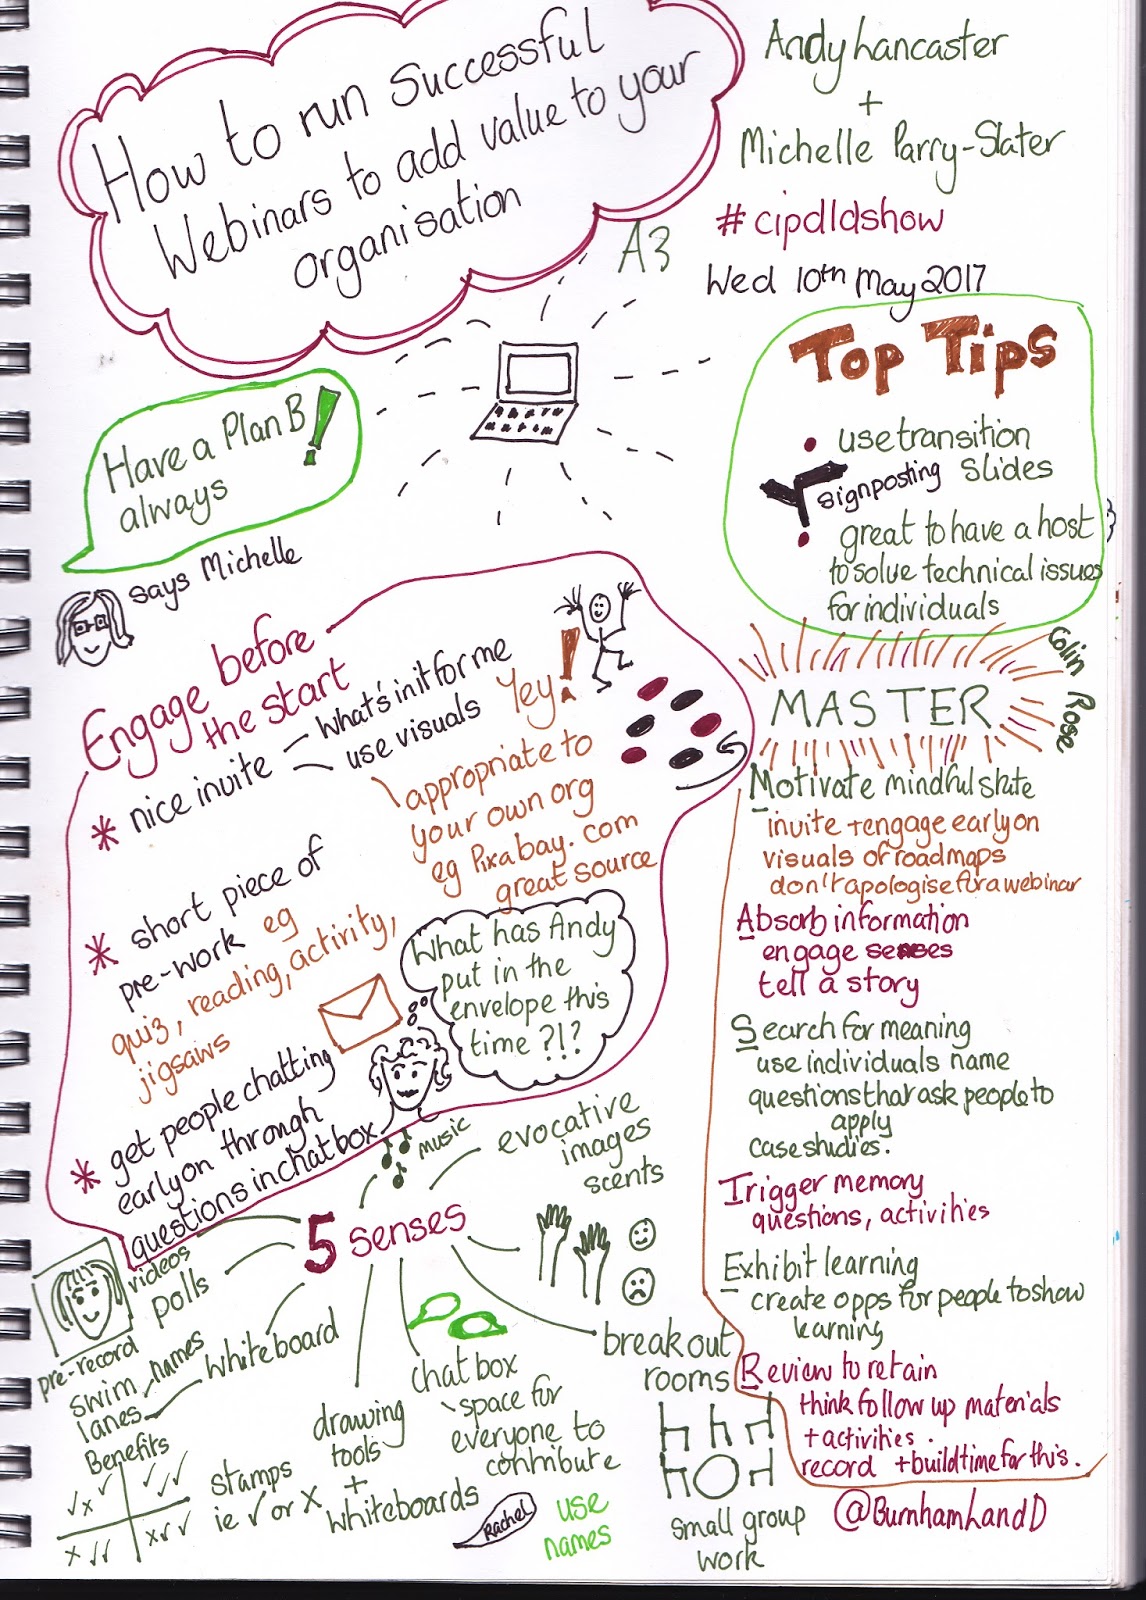 How to run successful
Webinars to add value to your
organisation
Andy Lancaster
+
Michelle Parry-Slater
#cipdldshow
A3
Wed 10th May 2017
Have a Plan B!
always
says Michelle
Top Tips
use transition
signposting slides
great to have a host
to solve technical issues
for individuals
Engage before
the start
* nice invite
What's in it for me
use visuals
Yey!
appropriate to
your own org
eg Pixabay.com
great source
* short piece of
pre-work eg
quiz, reading, activity,
jigsaws
What has Andy
put in the
envelope this
time ?!?
* get people chatting
early on through
questions in chat box
MASTER
Colin Rose
Motivate mindful state
invite + engage early on
visuals of roadmaps
don't apologise for a webinar
Absorb information
engage senses
tell a story
Search for meaning
use individuals name
questions that ask people to
apply
case studies.
Trigger memory
questions, activities
Exhibit learning
create opps for people to show
learning
Review to retain
think follow up materials
+ activities.
record + build time for this.
@BurnhamLandD
5 senses
music
evocative
images
scents
videos
polls
pre-record
whiteboard
names
swim
lanes
Benefits
stamps
ie ✓ or x
drawing
tools
+
whiteboards
chat box
space for
everyone to
contribute
Rachel
use
names
break out
rooms
small group
work
✓ x ✓
✓ ✓ ✓
x ✓ ✓
x ✓ ✓